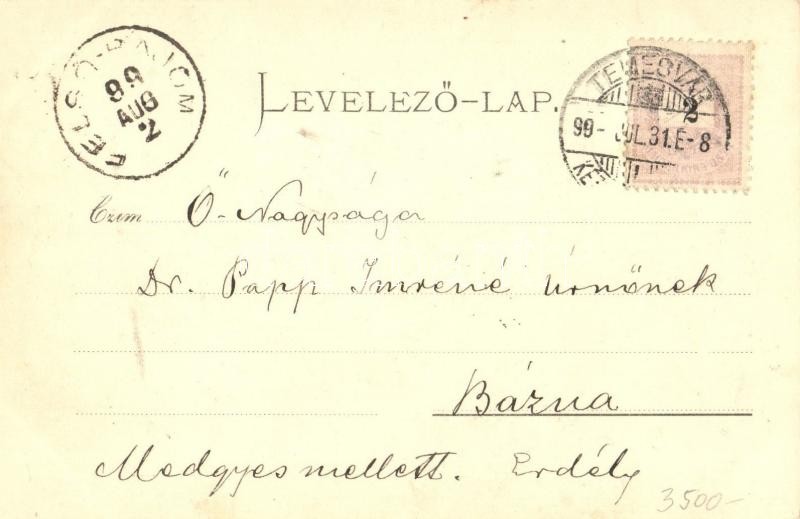 FELSŐ-BAJOM
99
AUG
2
LEVELEZŐ-LAP.
TEMESVÁR
99- JUL.31.E-8
2
Czim Ő Nagysága
Dr. Papp Imréné Úrnőnek
Bázna
Medgyes mellett. Erdély
3500-